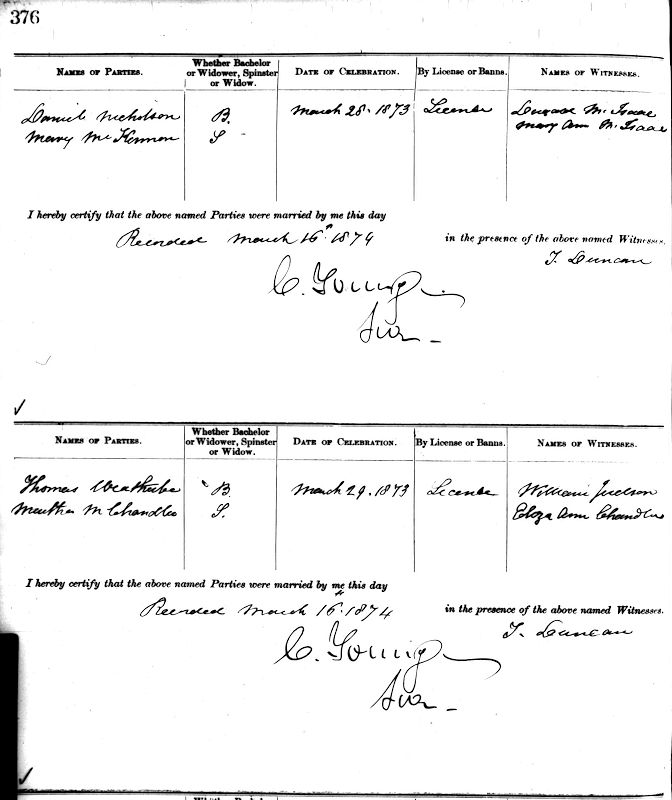 376
NAMES OF PARTIES.
Whether Bachelor
or Widower, Spinster
or Widow.
DATE OF CELEBRATION.
By License or Banns.
NAMES OF WITNESSES.
Daniel Nicholson B. March 28. 1873 License McIsaac
Mary McKinnon S Mary Ann McIsaac
I hereby certify that the above named Parties were married by me this day
Recorded March 16th 1874 in the presence of the above named Witnesses.
T. Duncan
C. Young
NAMES OF PARTIES.
Whether Bachelor
or Widower, Spinster
or Widow.
DATE OF CELEBRATION.
By License or Banns.
NAMES OF WITNESSES.
Thomas Weatherbe B. March 29. 1873 License William
Martha M Chandler S. Eliza Ann Chandler
I hereby certify that the above named Parties were married by me this day
Recorded March 16th 1874 in the presence of the above named Witnesses.
T. Duncan
C. Young